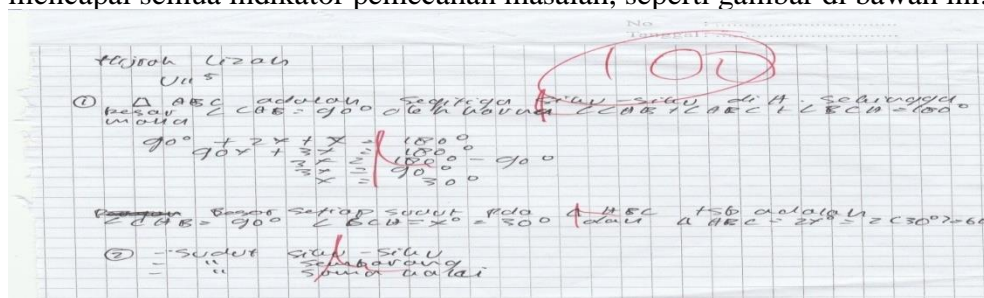 mencapai semua indikator pemecahan masalah, seperti gambar di bawah ini:
No.
Tanggal:
Hajrah Lizah
VII 5
100
① Δ ABC adalah segitiga siku-siku di A. sehingga
besar ∠CAB = 90° oleh karena ∠CAB + ∠ABC + ∠BCA = 180°
maka
90° + 2x + x = 180°
90 + 3x = 180°
3x = 180° - 90°
3x = 90°
x = 30°
besar setiap sudut pda Δ ABC tsb adalah
∠CAB = 90° ∠BCA = x° = 30° dan ABC = 2x° = 2(30°) = 60
② - Sudut siku-siku
- " sembarang
- " sama kaki